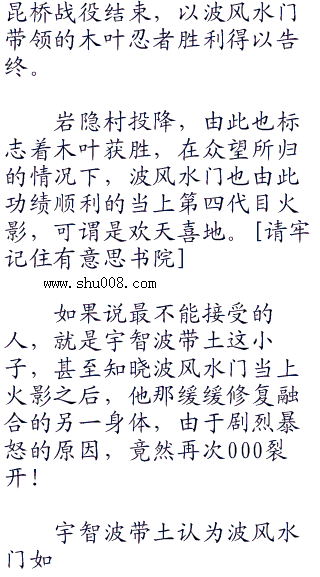 昆桥战役结束，以波风水门
带领的木叶忍者胜利得以告
终。
岩隐村投降，由此也标
志着木叶获胜，在众望所归
的情况下，波风水门也由此
功绩顺利的当上第四代目火
影，可谓是欢天喜地。[请牢
记住有意思书院]
www.shu008.com
如果说最不能接受的
人，就是宇智波带土这小
子，甚至知晓波风水门当上
火影之后，他那缓缓修复融
合的另一身体，由于剧烈暴
怒的原因，竟然再次000裂
开！
宇智波带土认为波风水
门如